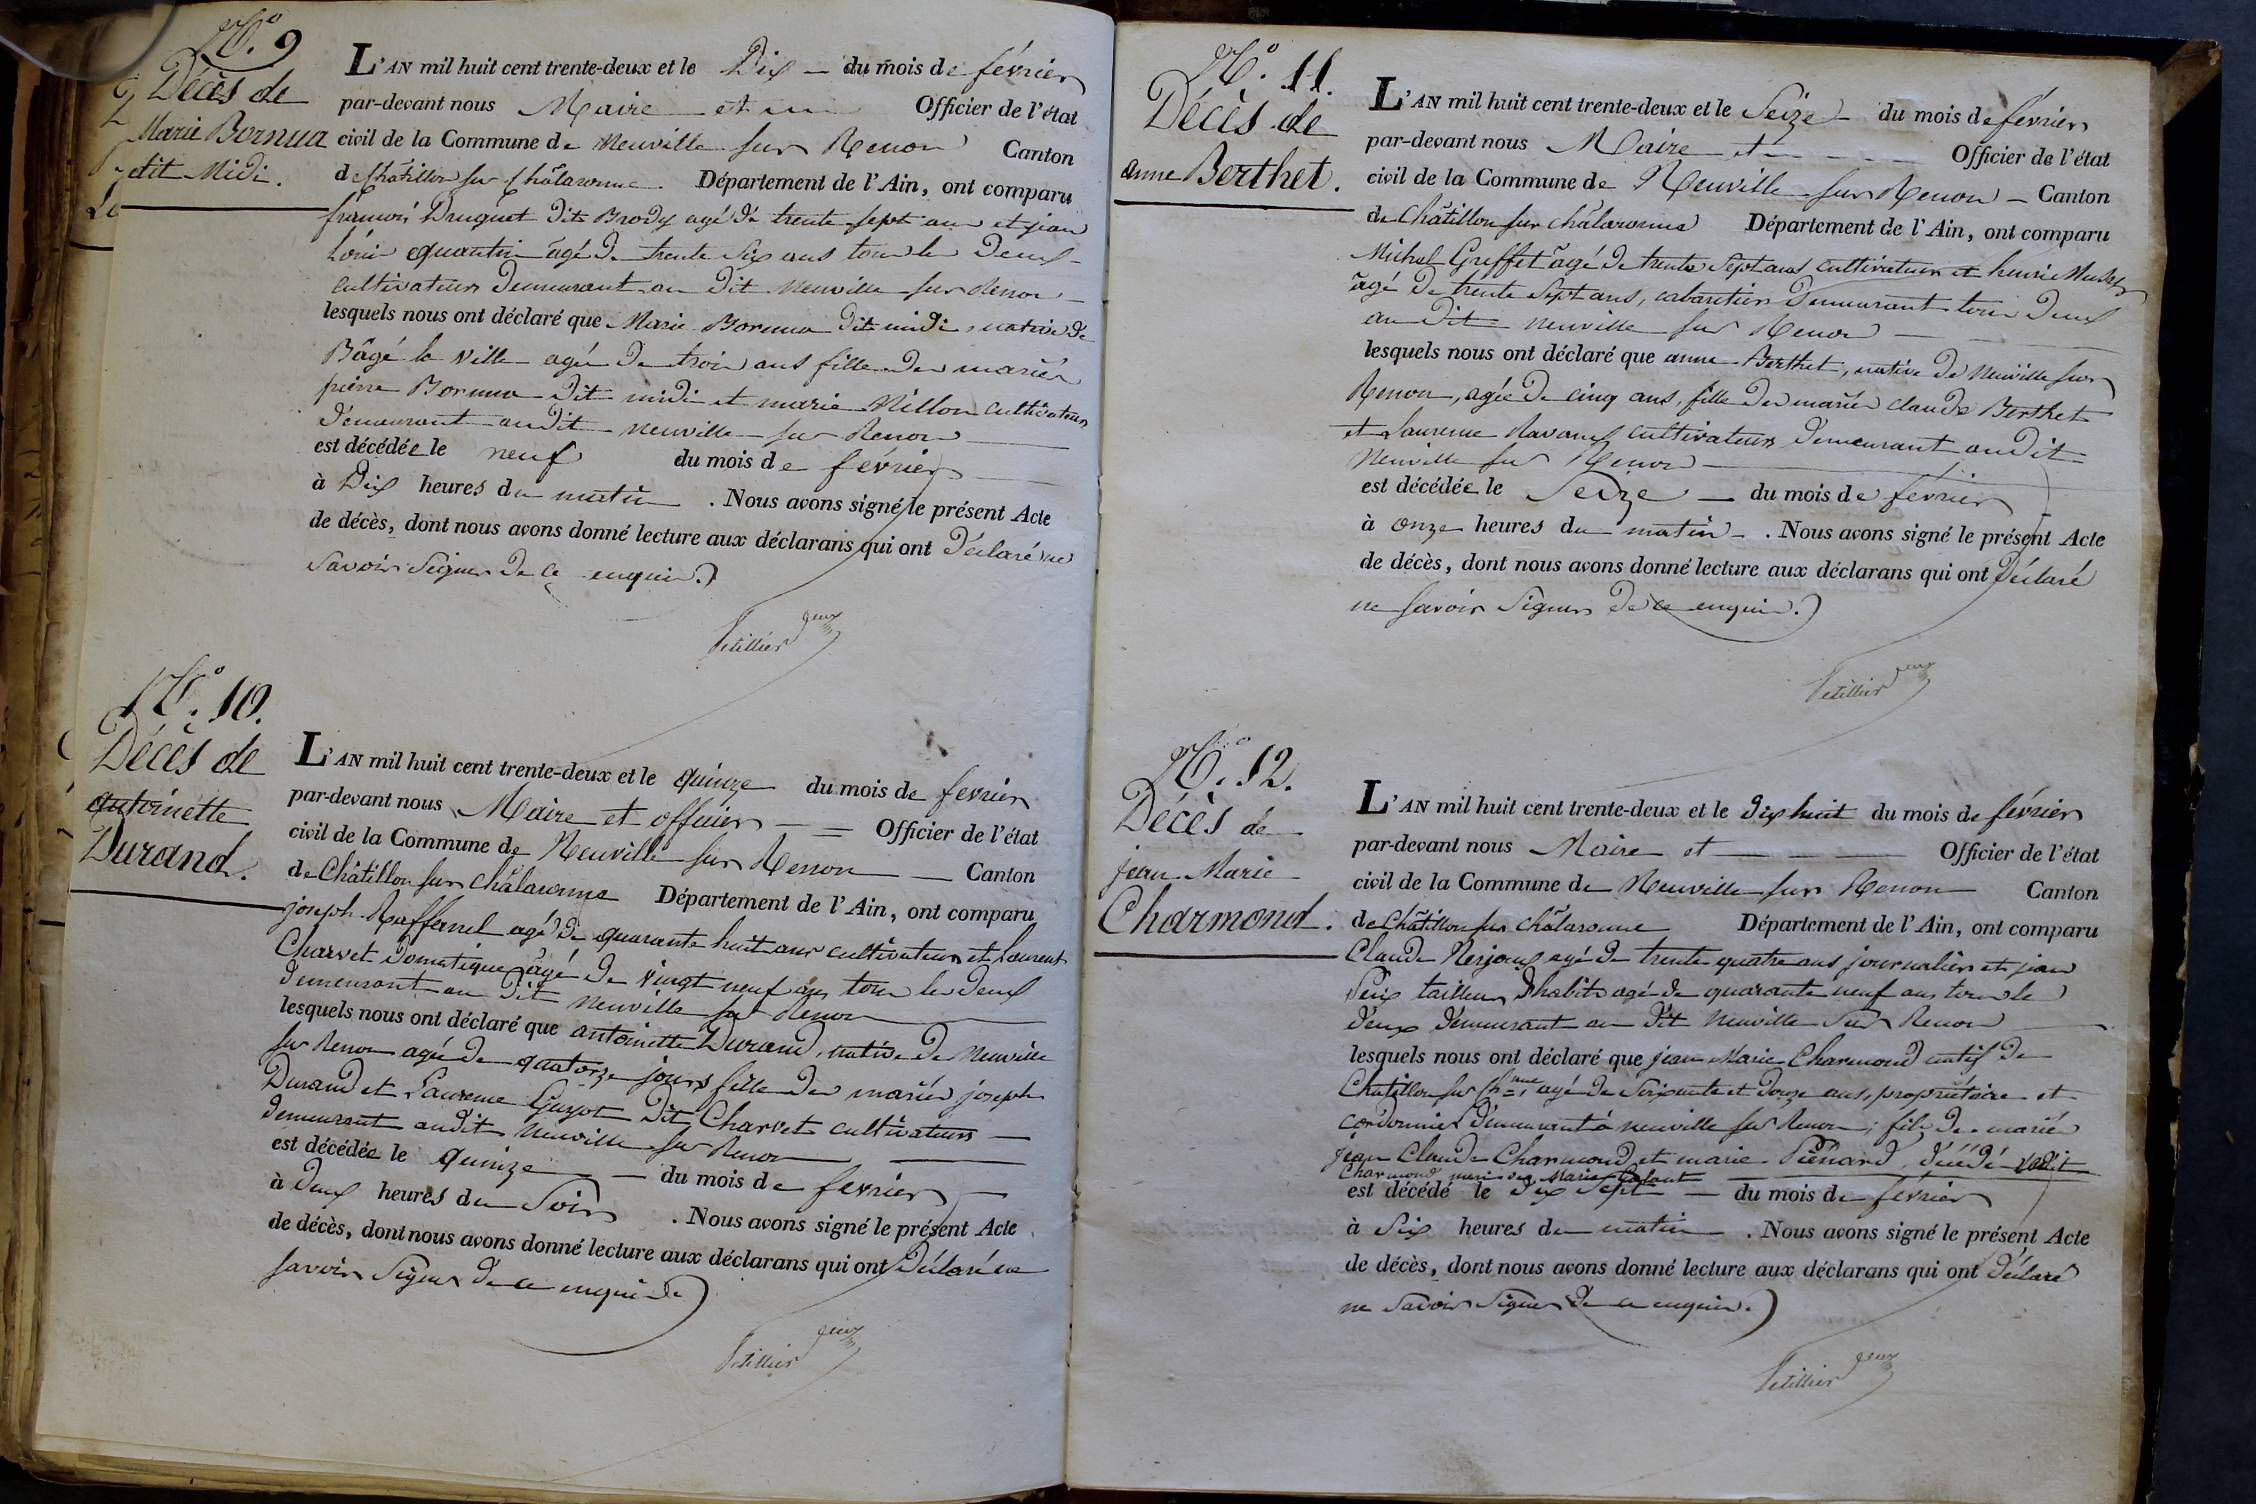 N.º 9
Décès de
Marie Bornua
dit Midi.
L'AN mil huit cent trente-deux et le Dix — du mois de février
par-devant nous Maire et un Officier de l'état
civil de la Commune de Neuville sur Renon Canton
de Châtillon sur Châlaronne. Département de l'Ain, ont comparu
françois Druguet dit Brody agé de trente sept ans et jean
Loui quantin âgé de trente Six ans tous les Deux
cultivateurs Demeurant au Dit Neuville sur Renon —
lesquels nous ont déclaré que Marie Bornua dit midi, native de
Bâgé la ville agée De trois ans fille Des mariés
pierre Bornua dit midi et marie Millon cultivateurs
Demeurant audit neuville sur Renon
est décédée le neuf du mois de février
à Dix heures du matin . Nous avons signé le présent Acte
de décès, dont nous avons donné lecture aux déclarans qui ont Déclaré ne
Savoir Signer De ce enquis.
Petillier
N.º 10.
Décès de
antoinette
Durand.
L'AN mil huit cent trente-deux et le quinze du mois de fevrier
par-devant nous Maire et officier — = Officier de l'état
civil de la Commune de Neuville sur Renon — Canton
de Châtillon sur Châlaronne Département de l'Ain, ont comparu
joseph Raffanel agé de quarante huit ans cultivateur et Laurent
Charvet Domestique âgé de vingt neuf ans tous les deux
demeurant au dit neuville sur Renon
lesquels nous ont déclaré que antoinette Durand, native de Neuville
sur Renon agée de quatorze jours fille des mariés joseph
Durand et Laurence Guyot dit Charvet cultivateurs —
demeurant audit Neuville sur Renon
est décédée le quinze — du mois de fevrier —
à deux heures du Soir . Nous avons signé le présent Acte
de décès, dont nous avons donné lecture aux déclarans qui ont Déclaré ne
savoir Signer de ce enquis
Petillier
N.º 11.
Décès de
anne Berthet.
L'AN mil huit cent trente-deux et le Seize — du mois de février
par-devant nous Maire et — Officier de l'état
civil de la Commune de Neuville sur Renon — Canton
de Châtillon sur Châlaronne Département de l'Ain, ont comparu
Michel Greffet âgé de trente sept ans cultivateur et henri
âgé De trente Sept ans, cabaretier Demeurant tous Deux
au Dit neuville sur Renon —
lesquels nous ont déclaré que anne Berthet, native de Neuville sur
Renon, agée De cinq ans, fille Des mariés claude Berthet
et Laurence cultivateurs demeurant audit
Neuville sur Renon —
est décédée le Seize — du mois de février
à onze heures du matin — . Nous avons signé le présent Acte
de décès, dont nous avons donné lecture aux déclarans qui ont Déclaré
ne Savoir Signer De ce enquis.
Petillier
N.º 12.
Décès de
jean Marie
Charmond.
L'AN mil huit cent trente-deux et le dix huit du mois de février
par-devant nous Maire et — Officier de l'état
civil de la Commune de Neuville sur Renon Canton
de Châtillon sur Châlaronne Département de l'Ain, ont comparu
Claude Nesjoux agé de trente quatre ans journalier et jean
tailleur D'habits agé de quarante neuf ans tous les
deux demeurant au dit Neuville sur Renon —
lesquels nous ont déclaré que jean Marie Charmond natif de
Chatillon sur Ch=ne agé de Soixante et Douze ans, propriétaire et
cordonnier demeurant à neuville sur Renon, fils des mariés
jean Claude Charmond et marie décédé ledit
Charmond mari de Marie
est décédé le dix sept — du mois de février
à Six heures du matin — . Nous avons signé le présent Acte
de décès, dont nous avons donné lecture aux déclarans qui ont déclaré
ne Savoir Signer de ce enquis.
Petillier